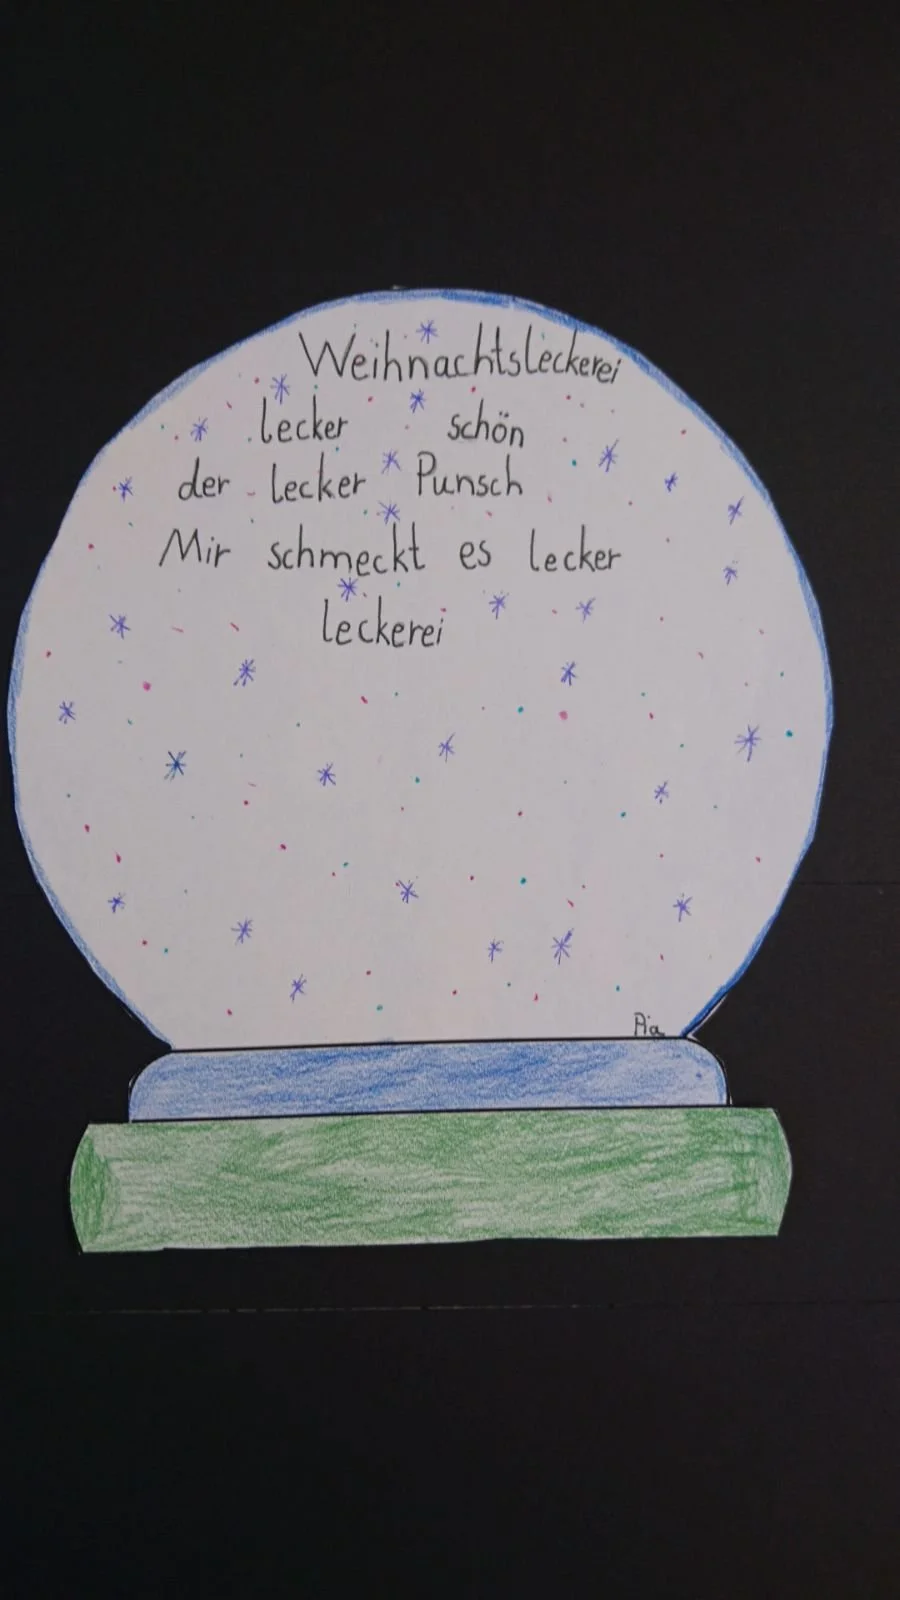 Weihnachtsleckerei
lecker schön
der lecker Punsch
Mir schmeckt es lecker
leckerei
Pia